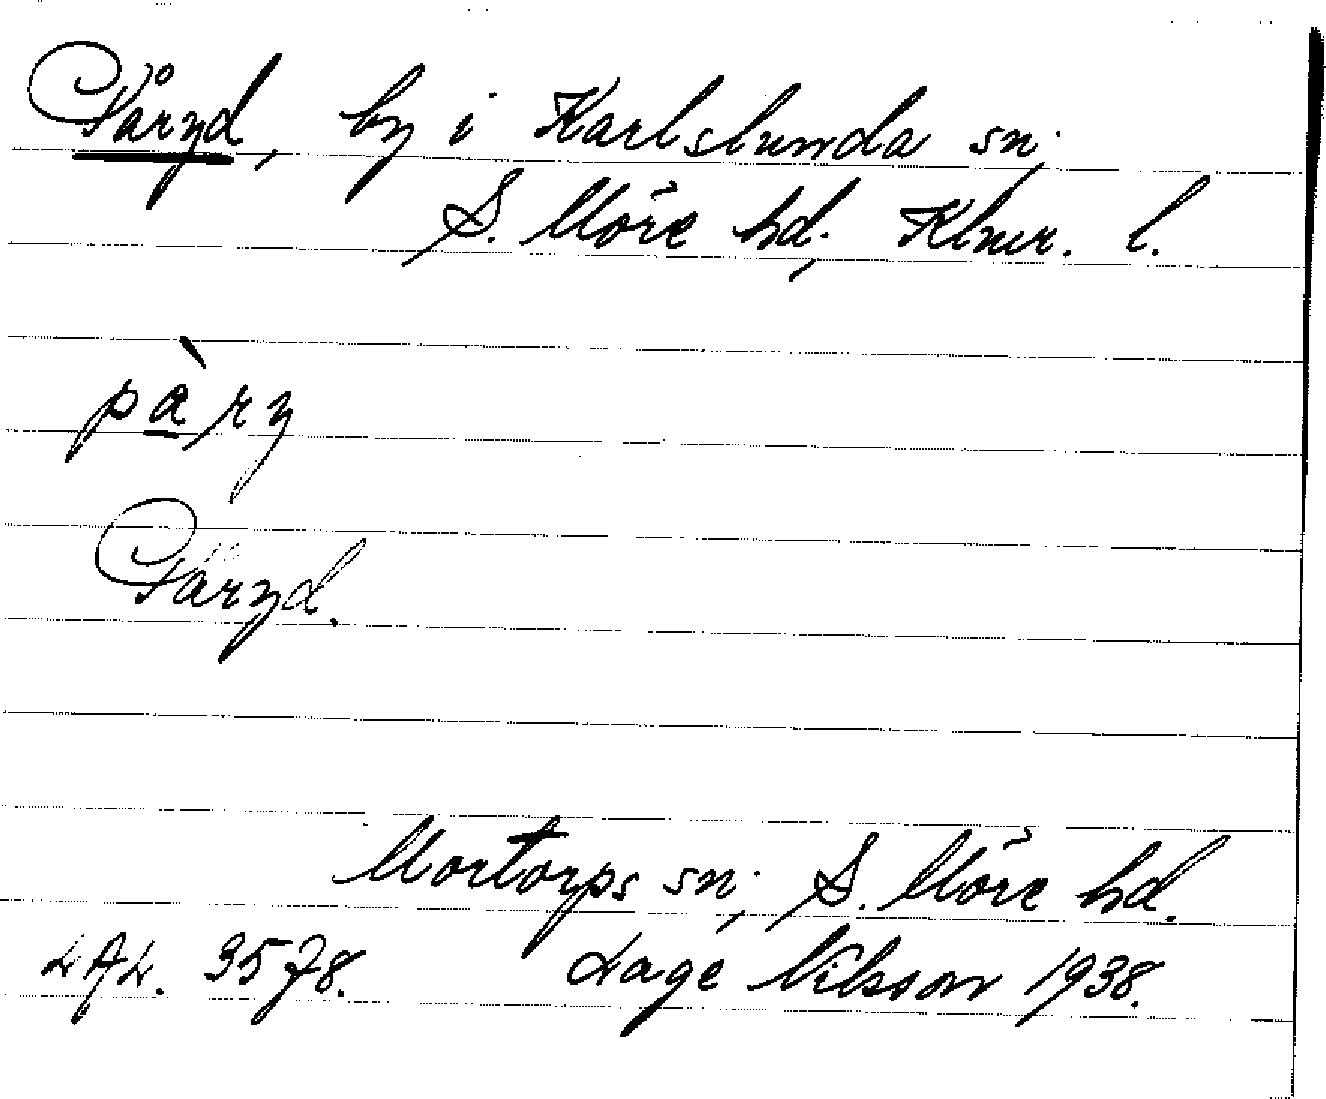 Påryd, by i Karlslunda sn;
S. Möre hd; Klmr. l.
pàry
Påryd.
Mortorps sn; S. Möre hd.
LAL. 3578. Lage Nilsson 1938.